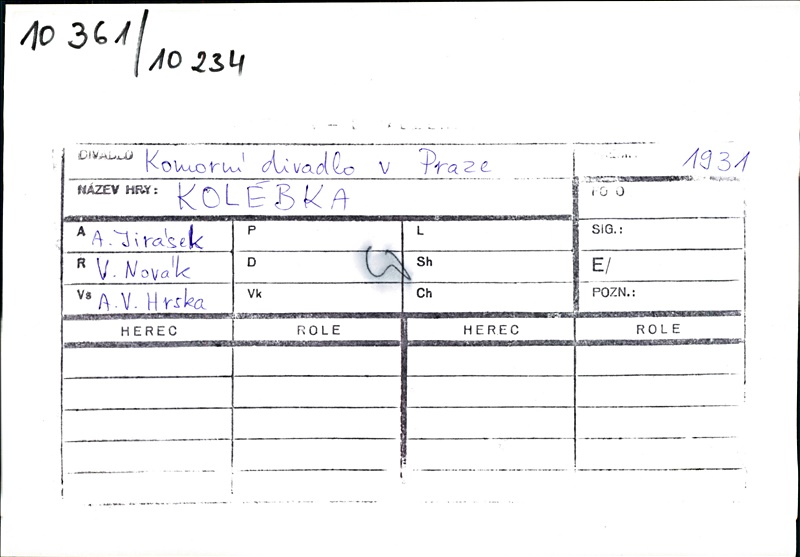 10 361/10 234
DIVADLO Komorní divadlo v Praze 1931
NÁZEV HRY: KOLÉBKA
A A. Jirásek P L SIG.:
R V. Novák D Sh E/
Vs A. V. Hrska Vk Ch POZN.:
HEREC ROLE HEREC ROLE